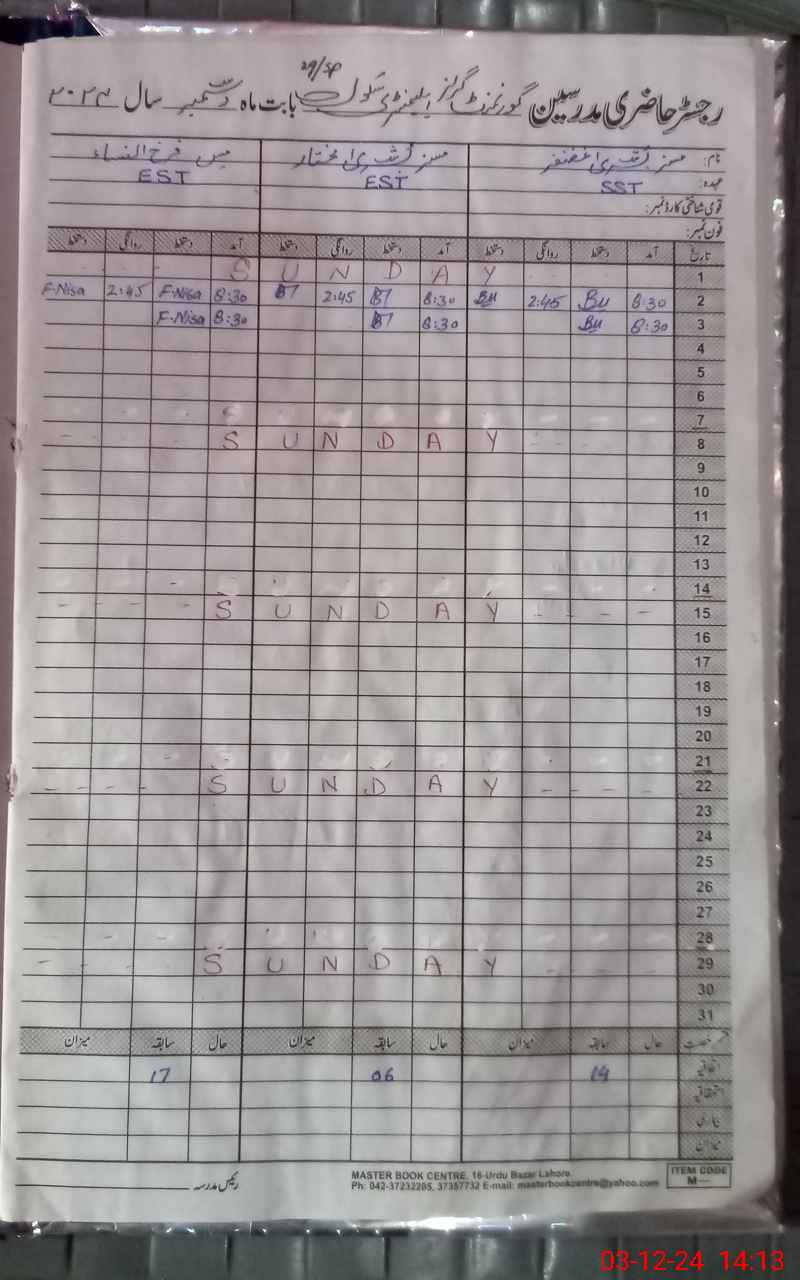 29/SP
رجسٹر حاضری مدرسین گورنمنٹ گرلز ایلیمنٹری سکول بابت ماہ دسمبر سال ۲۰۲۴
نام: مسز بشریٰ غضنفر مسز بشریٰ مختار مس فرخ النساء
عہدہ: SST EST EST
قومی شناختی کارڈ نمبر:
فون نمبر:
تاریخ آمد دستخط روانگی دستخط آمد دستخط روانگی دستخط آمد دستخط روانگی دستخط
S U N D A Y 1
F-Nisa 2:45 F-Nisa 8:30 BT 2:45 BT 8:30 Bu 2:45 Bu 8:30 2
F-Nisa 8:30 BT 8:30 Bu 8:30 3
4
5
6
7
S U N D A Y 8
9
10
11
12
13
14
S U N D A Y 15
16
17
18
19
20
21
S U N D A Y 22
23
24
25
26
27
28
S U N D A Y 29
30
31
رخصت حال سابقہ میزان حال سابقہ میزان حال سابقہ میزان
اتفاقیہ 19 06 17
استحقاقیہ
بیماری
میزان
رئیس مدرسہ
MASTER BOOK CENTRE, 16-Urdu Bazar Lahore.
Ph: 042-37232205, 37357732 E-mail: masterbookcentre@yahoo.com
ITEM CODE
M—
03-12-24 14:13